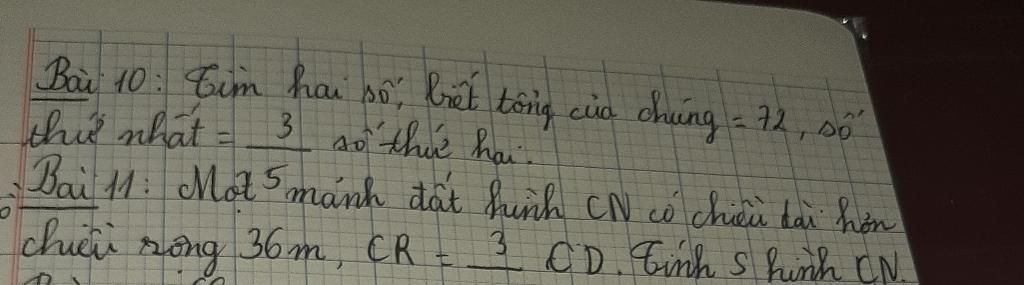 Bài 10: Tìm hai số, biết tổng của chúng = 72, số
thứ nhất = 3/5 số thứ hai.
Bài 11: Một mảnh đất hình CN có chiều dài hơn
chiều rộng 36m, CR = 3 CD. Tính S hình CN.